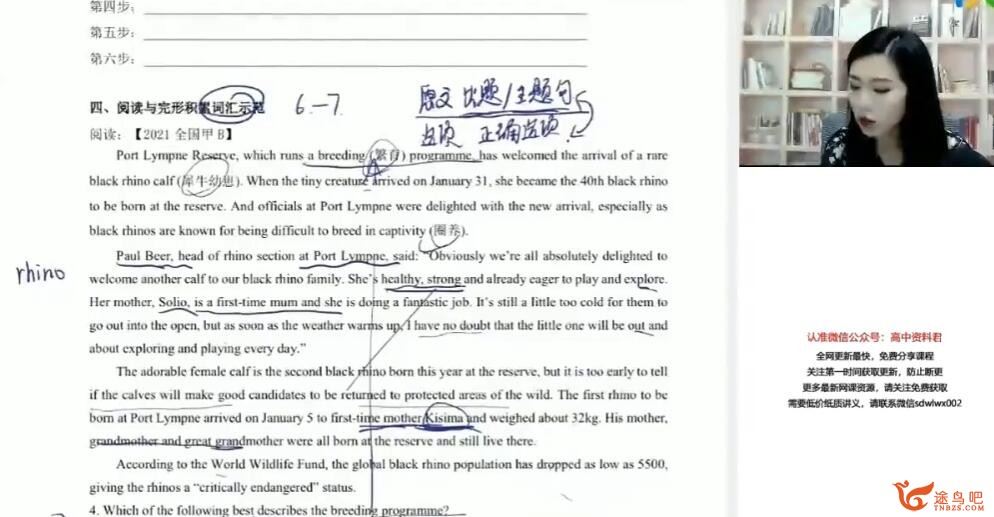 第四步：
第五步：
第六步：
四、阅读与完形积累词汇示范 6-7 原文 出题/主题句
选项 正确选项
阅读：【2021 全国甲 B】
Port Lympne Reserve, which runs a breeding (繁育) programme, has welcomed the arrival of a rare
black rhino calf (犀牛幼崽). When the tiny creature arrived on January 31, she became the 40th black rhino
to be born at the reserve. And officials at Port Lympne were delighted with the new arrival, especially as
black rhinos are known for being difficult to breed in captivity (圈养).
Paul Beer, head of rhino section at Port Lympne, said: "Obviously we're all absolutely delighted to
rhino
welcome another calf to our black rhino family. She's healthy, strong and already eager to play and explore.
Her mother, Solio, is a first-time mum and she is doing a fantastic job. It's still a little too cold for them to
go out into the open, but as soon as the weather warms up, I have no doubt that the little one will be out and
about exploring and playing every day."
The adorable female calf is the second black rhino born this year at the reserve, but it is too early to tell
if the calves will make good candidates to be returned to protected areas of the wild. The first rhino to be
born at Port Lympne arrived on January 5 to first-time mother Kisima and weighed about 32kg. His mother,
grandmother and great grandmother were all born at the reserve and still live there.
According to the World Wildlife Fund, the global black rhino population has dropped as low as 5500,
giving the rhinos a "critically endangered" status.
4. Which of the following best describes the breeding programme?
认准微信公众号：高中资料君
全网更新最快，免费分享课程
关注第一时间获取更新，防止断更
更多最新网课资源，请关注免费获取
需要低价纸质讲义，请联系微信sdwlwx002
途鸟吧
TNBZS.COM